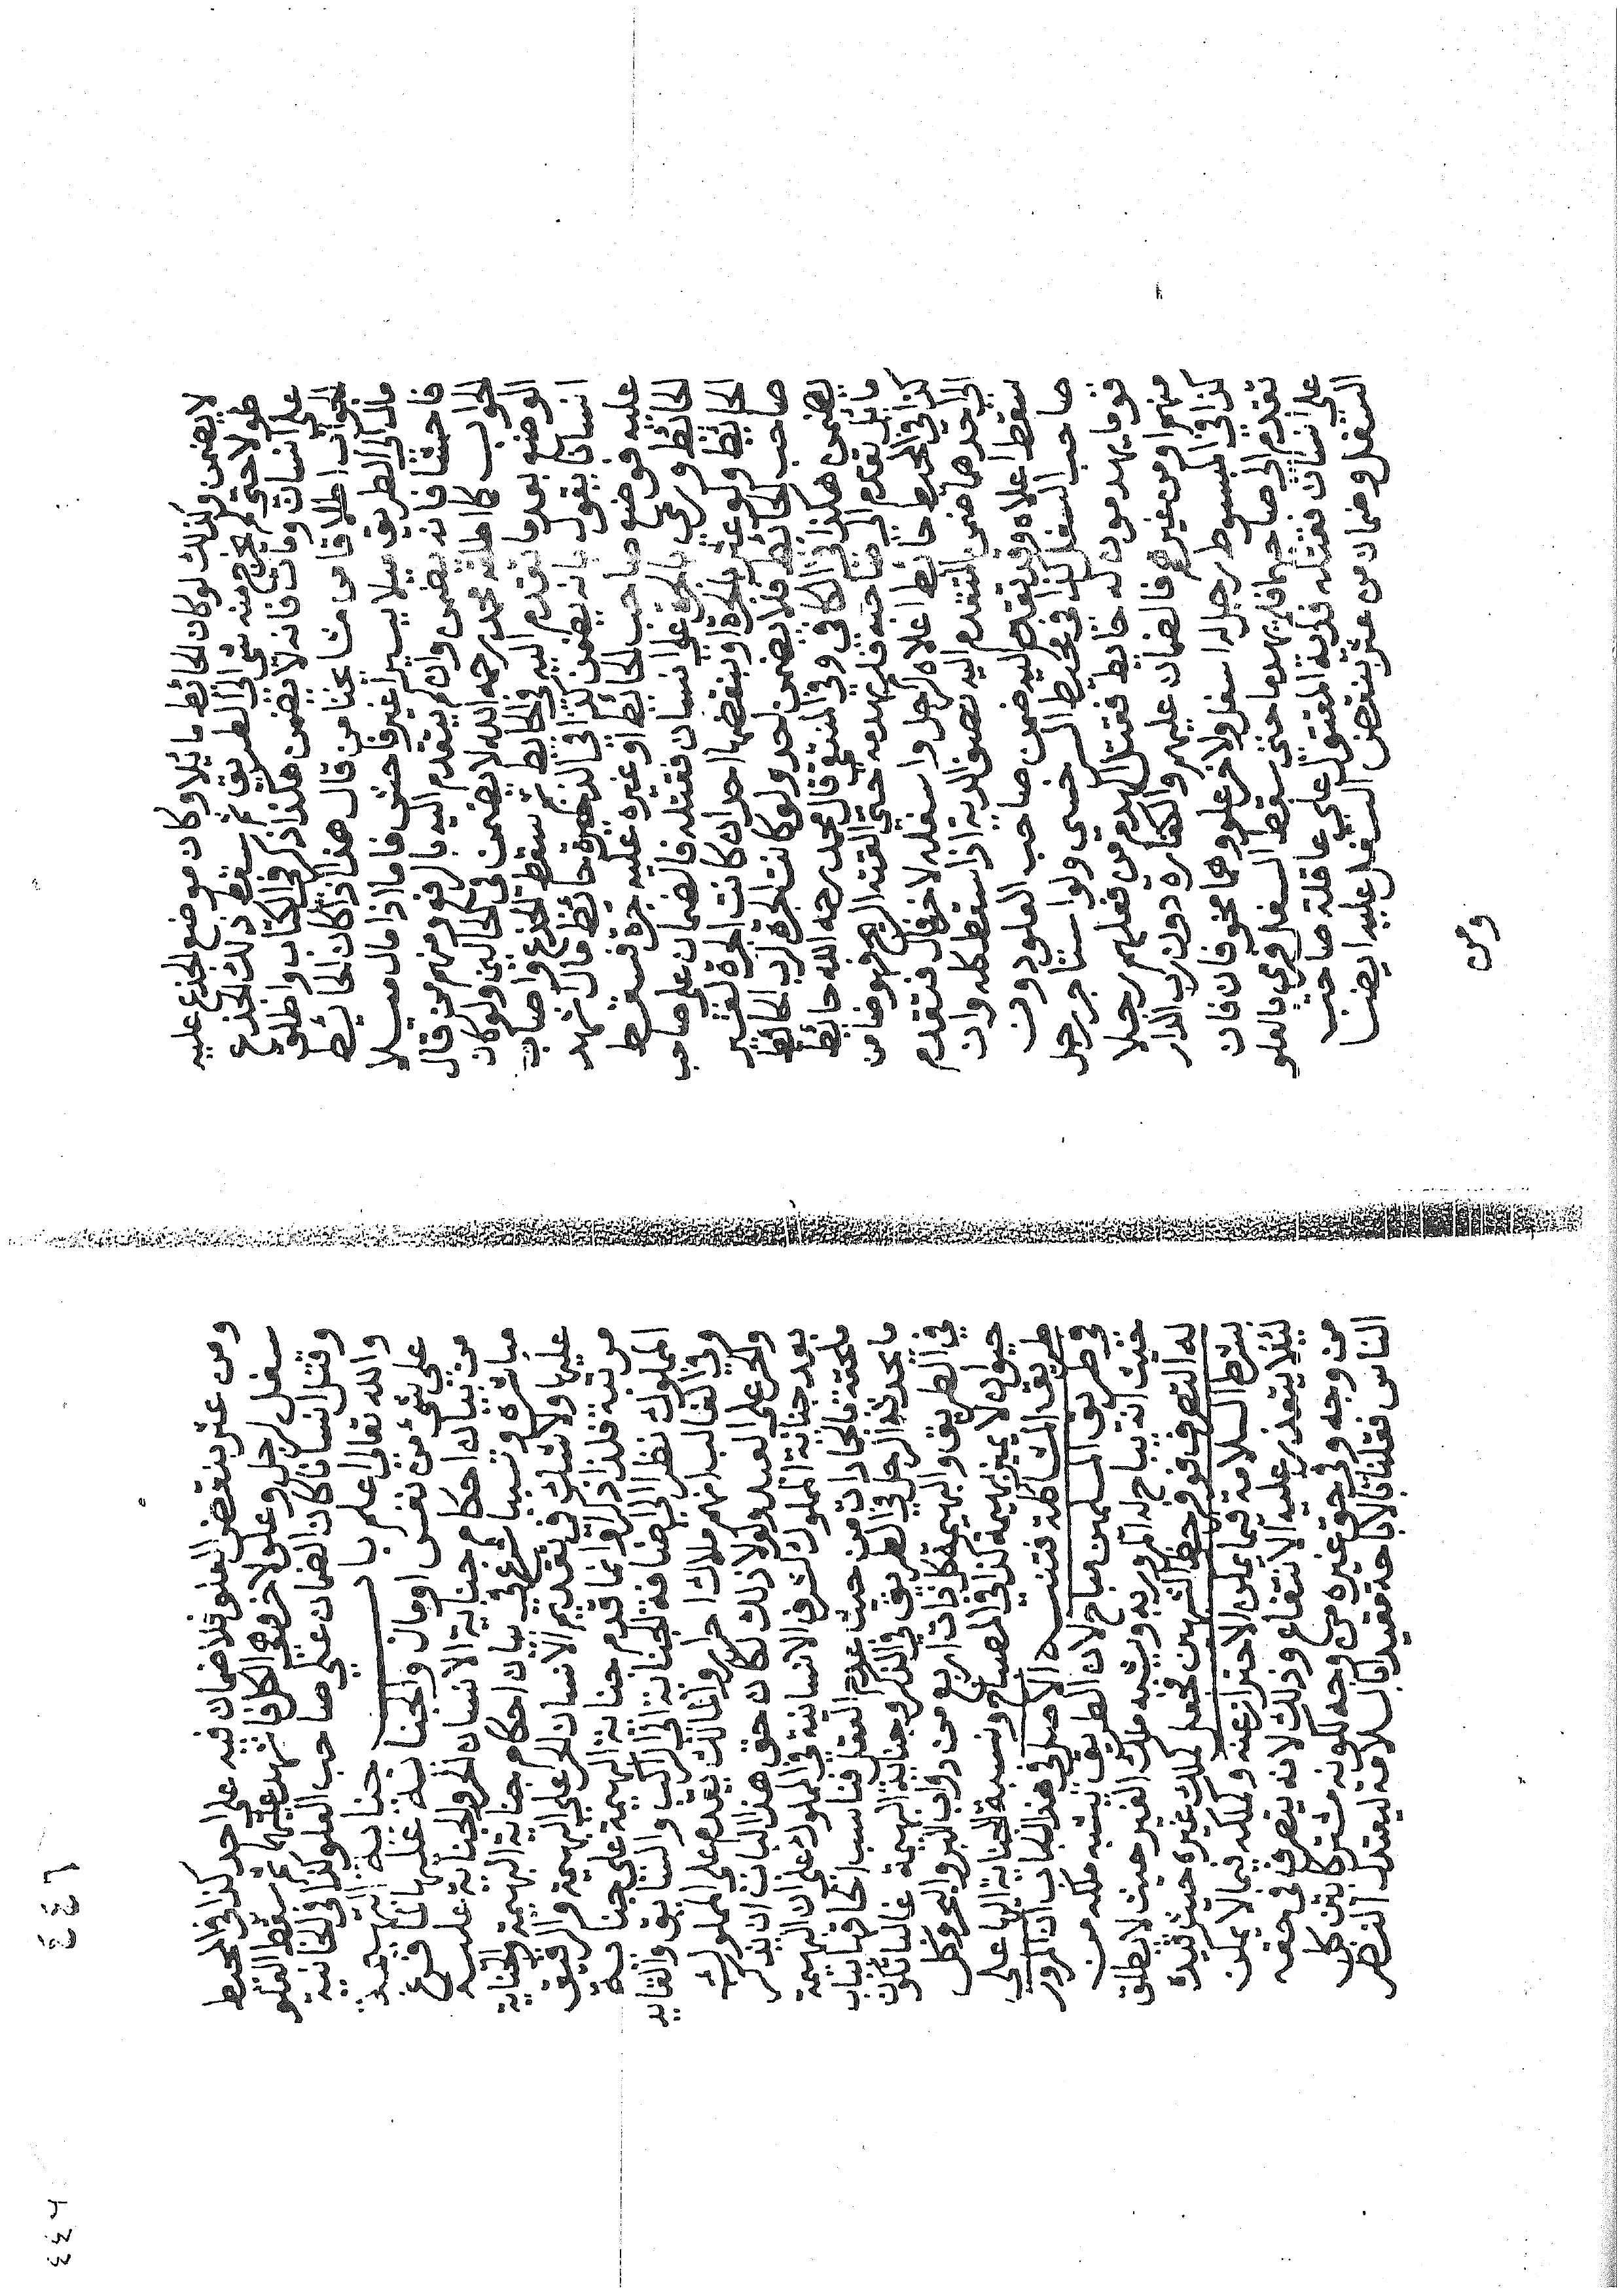 لا يضمن وكذلك لو كان الحائط مائلا وكان موضع الجذع عليه
طولا حتى لم يخرج منه شي الى الطريق ثم سقط ذلك الجذع
على انسان ومات فانه لا يضمن هكذا ذكر في الكتاب واطلق
الجواب اطلاقا من مشايخنا من قال هذا اذا كان الحايط
مال الى الطريق ميلا يسيرا غير فاحش فاما اذا مال ميلا
فاحشا فانه يضمن وان لم يتقدم اليه بالرفع ومنهم من قال
الجواب كما اطلقه محمد رحمه الله لا يضمن في الحالين ولو كان
الوضع بعدما تقدم اليه في الحايط ثم سقط الجذع واصاب
انسانا يقول بانه يضمن كذا في الذخيرة حائط مال اشهد
عليه فوضع صاحب الحائط او غيره عليه جرة فسقط
الحائط ورمى بالجرة على انسان فقتله فالضمان على صاحب
الحايط ولو عثر بالجرة او بنقضها احد ان كانت الجرة لغير
صاحب الحائط فلا يضمن احد ولو كانت الجرة لرب الحائط
يضمن هكذا في الكافي وفي المنتقى قال محمد رحمه الله حائط
مائل تقدم الى صاحبه فلم يهدمه حتى القته الريح فهو ضامن
كذا في المحيط حائط اعلاه لرجل واسفله لاخر مال فتقدم
الى احدهما ضمن المتقدم اليه نصف الدية اذا سقط كله وان
سقط اعلاه وقد تقدم اليه ضمن صاحب العلو دون
صاحب السفل كذا في محيط السرخسي ولو استاجر رجل
قوما يهدمون له حايط فقتل الهدم من فعلهم رجلا
منهم او من غيرهم فالضمان عليهم والكفارة دون رب الدار
كذا في المبسوط رجل له اسفل ولاخر علو وهما مخوفان فان
تقدم الى صاحبهما فلم يهدما حتى سقط السفل ورمي بالعلو
على انسان فقتله فدية المقتول على عاقلة صاحب
السفل وضمان من عثر بنقض السفل عليه ايضا
ومن
ومن عثر بنقض العلو فلا ضمان فيه على احد كذا في المحيط
سفل لرجل وعلو لاخر وهي الكل فاشهد عليهما ثم سقط العلو
وقتل انسانا كان الضمان على صاحب العلو كذا في الخانية
والله تعالى اعلم باب جناية البهيمة
على شي من نفس او مال والجناية عليها لما فرغ
من بيان احكام جناية الانسان الحر والجناية عليه
مباشرة وتسببا شرع في بيان احكام جناية البهيمة والجناية
عليها ولا شك في تقديم الانسان الحر على البهيمة والرقيق
مرتبة فلذا ذكر وانما قدم جناية البهيمة على جناية
المملوك نظرا الى اضافة الجناية الى الراكب والسايق والقايد
وفي الغالب انهم ملاك احرار والمالك يقدم على المملوك
والحر على العبد ولولا ذلك لكان حق هذا الباب ان يذكر
بعد جناية المملوك لشرف الانسانية في المملوك على ان البهيمة
ملحقة بالجمادات من حيث عدم العقل فناسب الحاقها بباب
ما يحدثه الرجل في الطريق في الذكر وجناية البهيمة غالبا تكون
في الطريق والبهيمة كل ذات اربع من دواب البر والبحر وكل
حيوان لا يميز بهيمة كذا في المصباح ونسبة الجناية اليها على
طريق المشاكلة فتنبه الاصل في هذا الباب ان المرور
في طريق المسلمين مباح لان الطريق يشبه ملكه من
حيث انه يباح له المرور به ويشبه ملك الغير حيث لا يطلق
له التصرف فوفر حظ الشبهين فجعل كملك غيره حيث قيد
بشرط السلامة فيما يمكن الاحتراز عنه وكملكه فيما لا يمكن
ليلا يتعذر عليه الانتفاع وذلك لانه يتصرف في حقه
من وجه وفي حق غيره من وجه لكونه مشتركا بين كل
الناس فقلنا بالاباحة مقيدا بالسلامة ليعتدل النظر
٤٤٦
٤٤٦